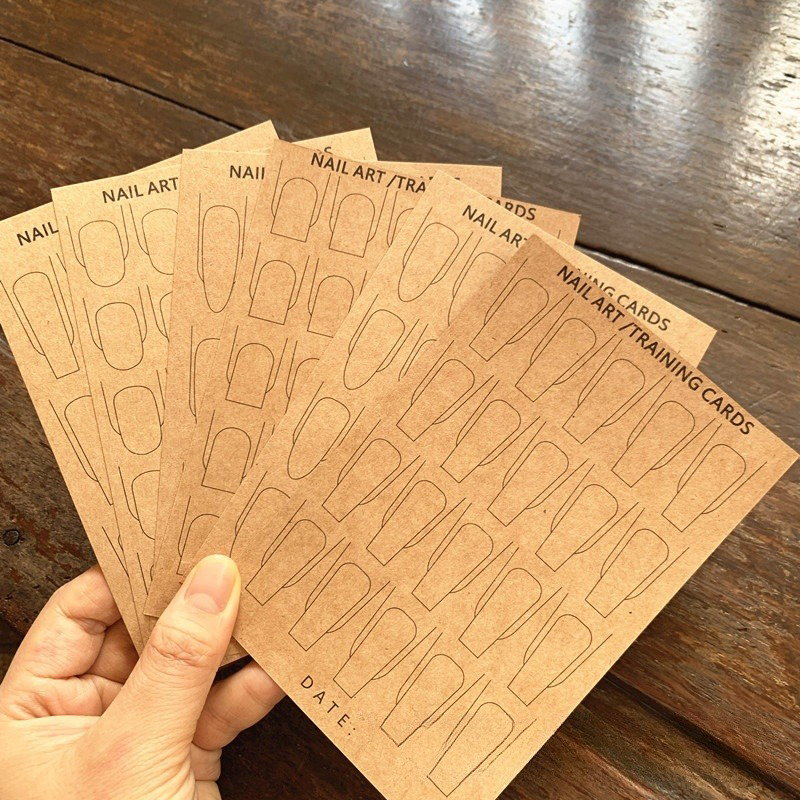 NAIL
NAIL ART
NAI
S
NAIL ART /TRA
ARDS
NAIL AR
NING CARDS
NAIL ART /TRAINING CARDS
DATE: